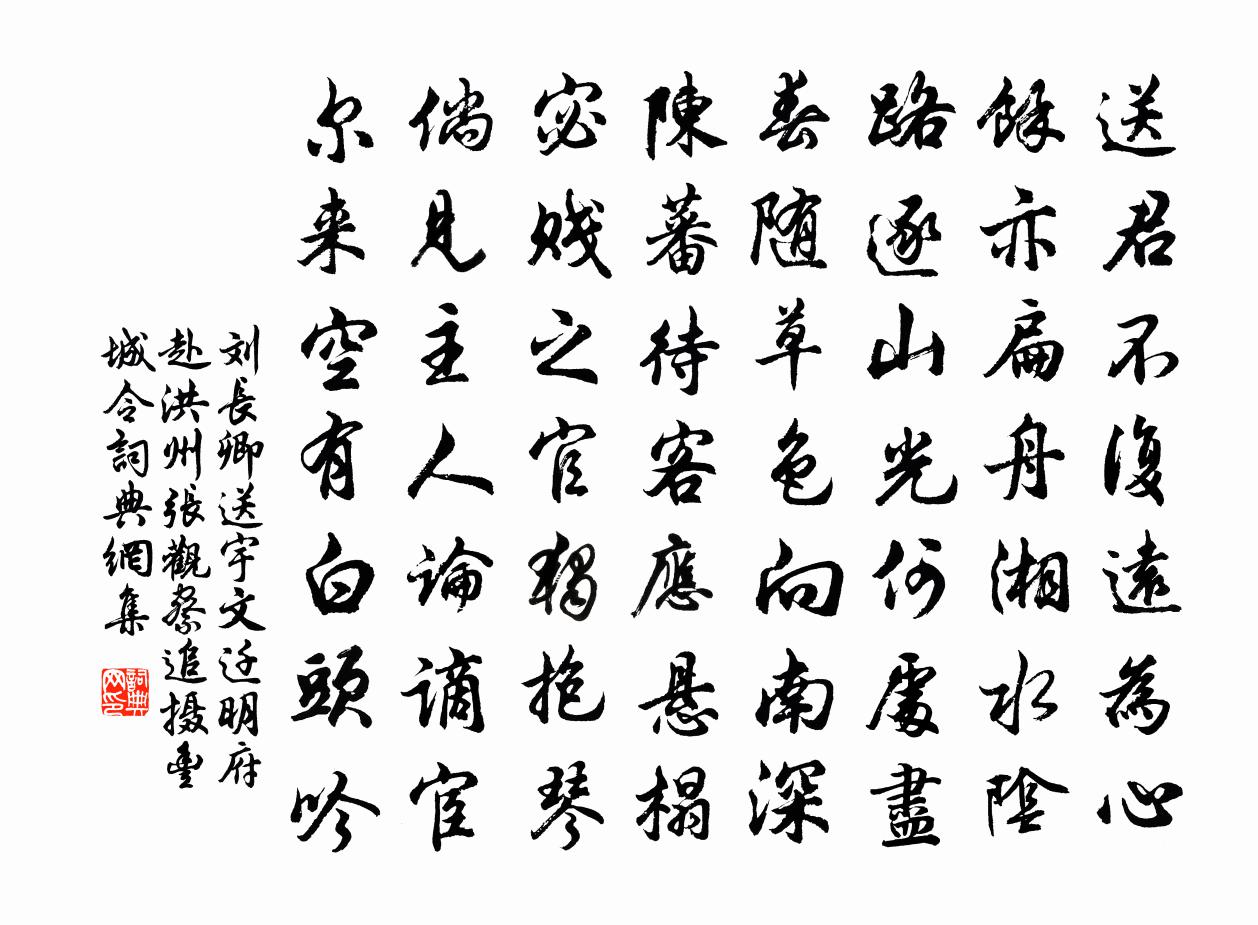 送君不復遠為心
餘亦扁舟湘水陰
路逐山光何處盡
春随草色向南深
陳蕃待客應懸榻
宓賤之官獨抱琴
倘見主人論謫宦
尔来空有白頭吟
刘長卿送宇文迁明府
赴洪州張觀察追摄豐
城令詞典網集
詞典网印